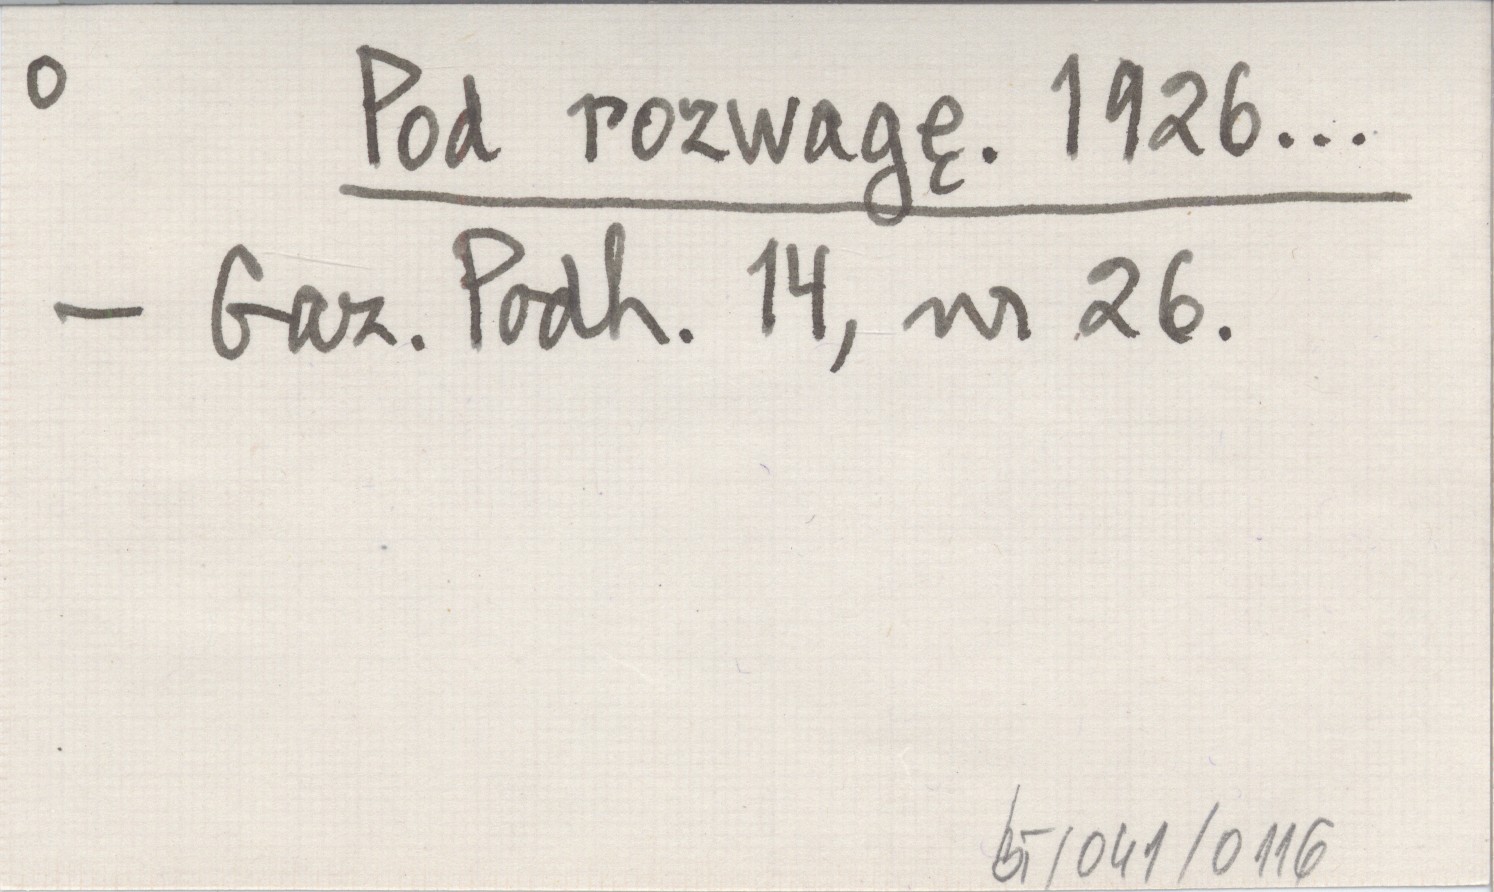 o Pod rozwagę. 1926...
— Gaz. Podh. 14, nr 26.
/041/0116